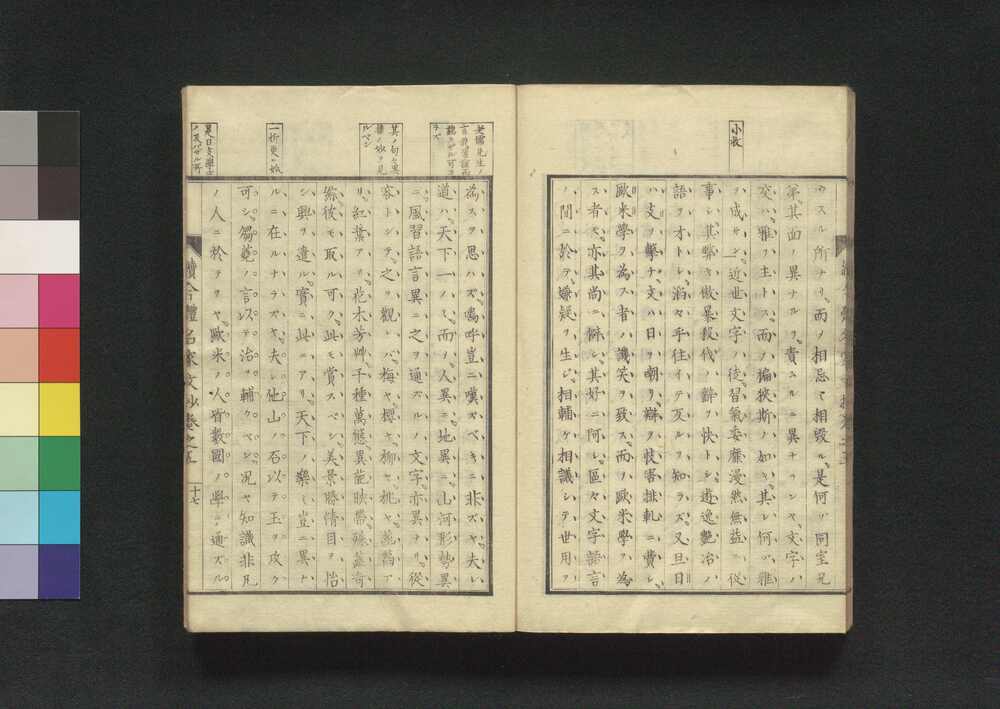 小收
ウスル所ナリ而ノ相忌ミ相毀ル是何ソ同室兄
弟其面ノ異ナルヲ責ムルニ異ナランヤ文字ハ
交ハ雅ヲ主トス而ノ褊狭斯ノ如シ其レ何ソ雅
ヲ成サン近世文字ノ徒習氣委靡漫然無益ニ從
事シ其弊ヤ傲暴投伐ノ辭ヲ快トシ遒逸艶冶ノ
語ヲオトシ滔々乎往イテ反ルヲ知ラズ又且日
ハ支ヲ撃チ支ハ日ヲ嘲リ辯ヲ忮害排軋ニ費シ
歐米學ヲ為ス者ハ譏笑ヲ致ス而ノ歐米學ヲ為
ス者ス亦其尚ニ僻シ其好ニ阿シ區々文字語言
ノ間ニ於テ嫌疑ヲ生ジ相輔ケ相議シテ世用ヲ
其ノ句々奧
妙ヲ見
ルベシ
一折更ニ妙
為スヲ思ハズ嗚呼豈ニ嘆ズベキニ非ズヤ夫レ
道ハ天下一ノミ而ノ人異ニ地異ニ山河形勢異
ニ風習語言異ニ之ヲ通ズルノ文字亦異ナリ從
容トシテ之ヲ觀レバ梅ヤ櫻ヤ柳ヤ桃ヤ
リ紅葉アリ花木芳艸千種萬態異能映帶
彼モ取ルベク此モ賞スベシ美景勝情目ヲ怡
シ興ヲ遣ル實ニ此ニアリ天下ノ樂ミ豈ニ異ナ
ルニ在ルナラズヤ夫レ他山ノ石以テ玉ヲ攻ク
可シ芻蕘ノ言以テ治ヲ輔クベシ况ヤ知識非凡
ノ人ニ於ヲヤ歐米ノ人皆數國ノ學ニ通ズル
續今體名家文抄卷之五
十七